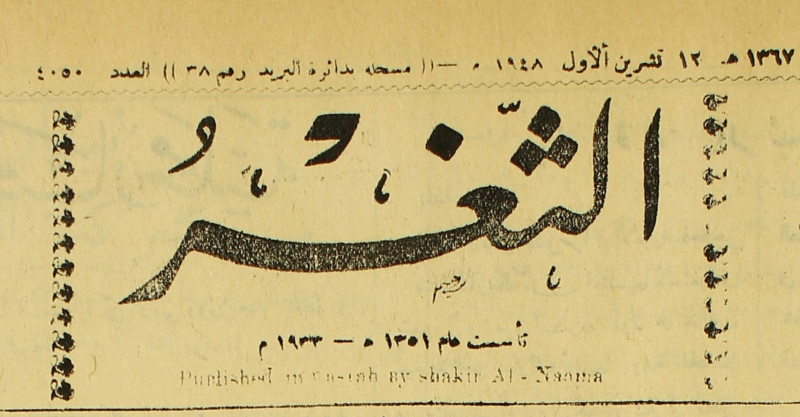 ١٣٦٧ هـ ١٢ تشرين الاول ١٩٤٨ م —(( مسجله بدائرة البريد رقم ٣٨ )) العدد ٤٠٥٠
الثَّغْرُ
تأسست عام ١٣٥١ ه — ١٩٣٣ م
Published in Basrah by shakir Al - Naama